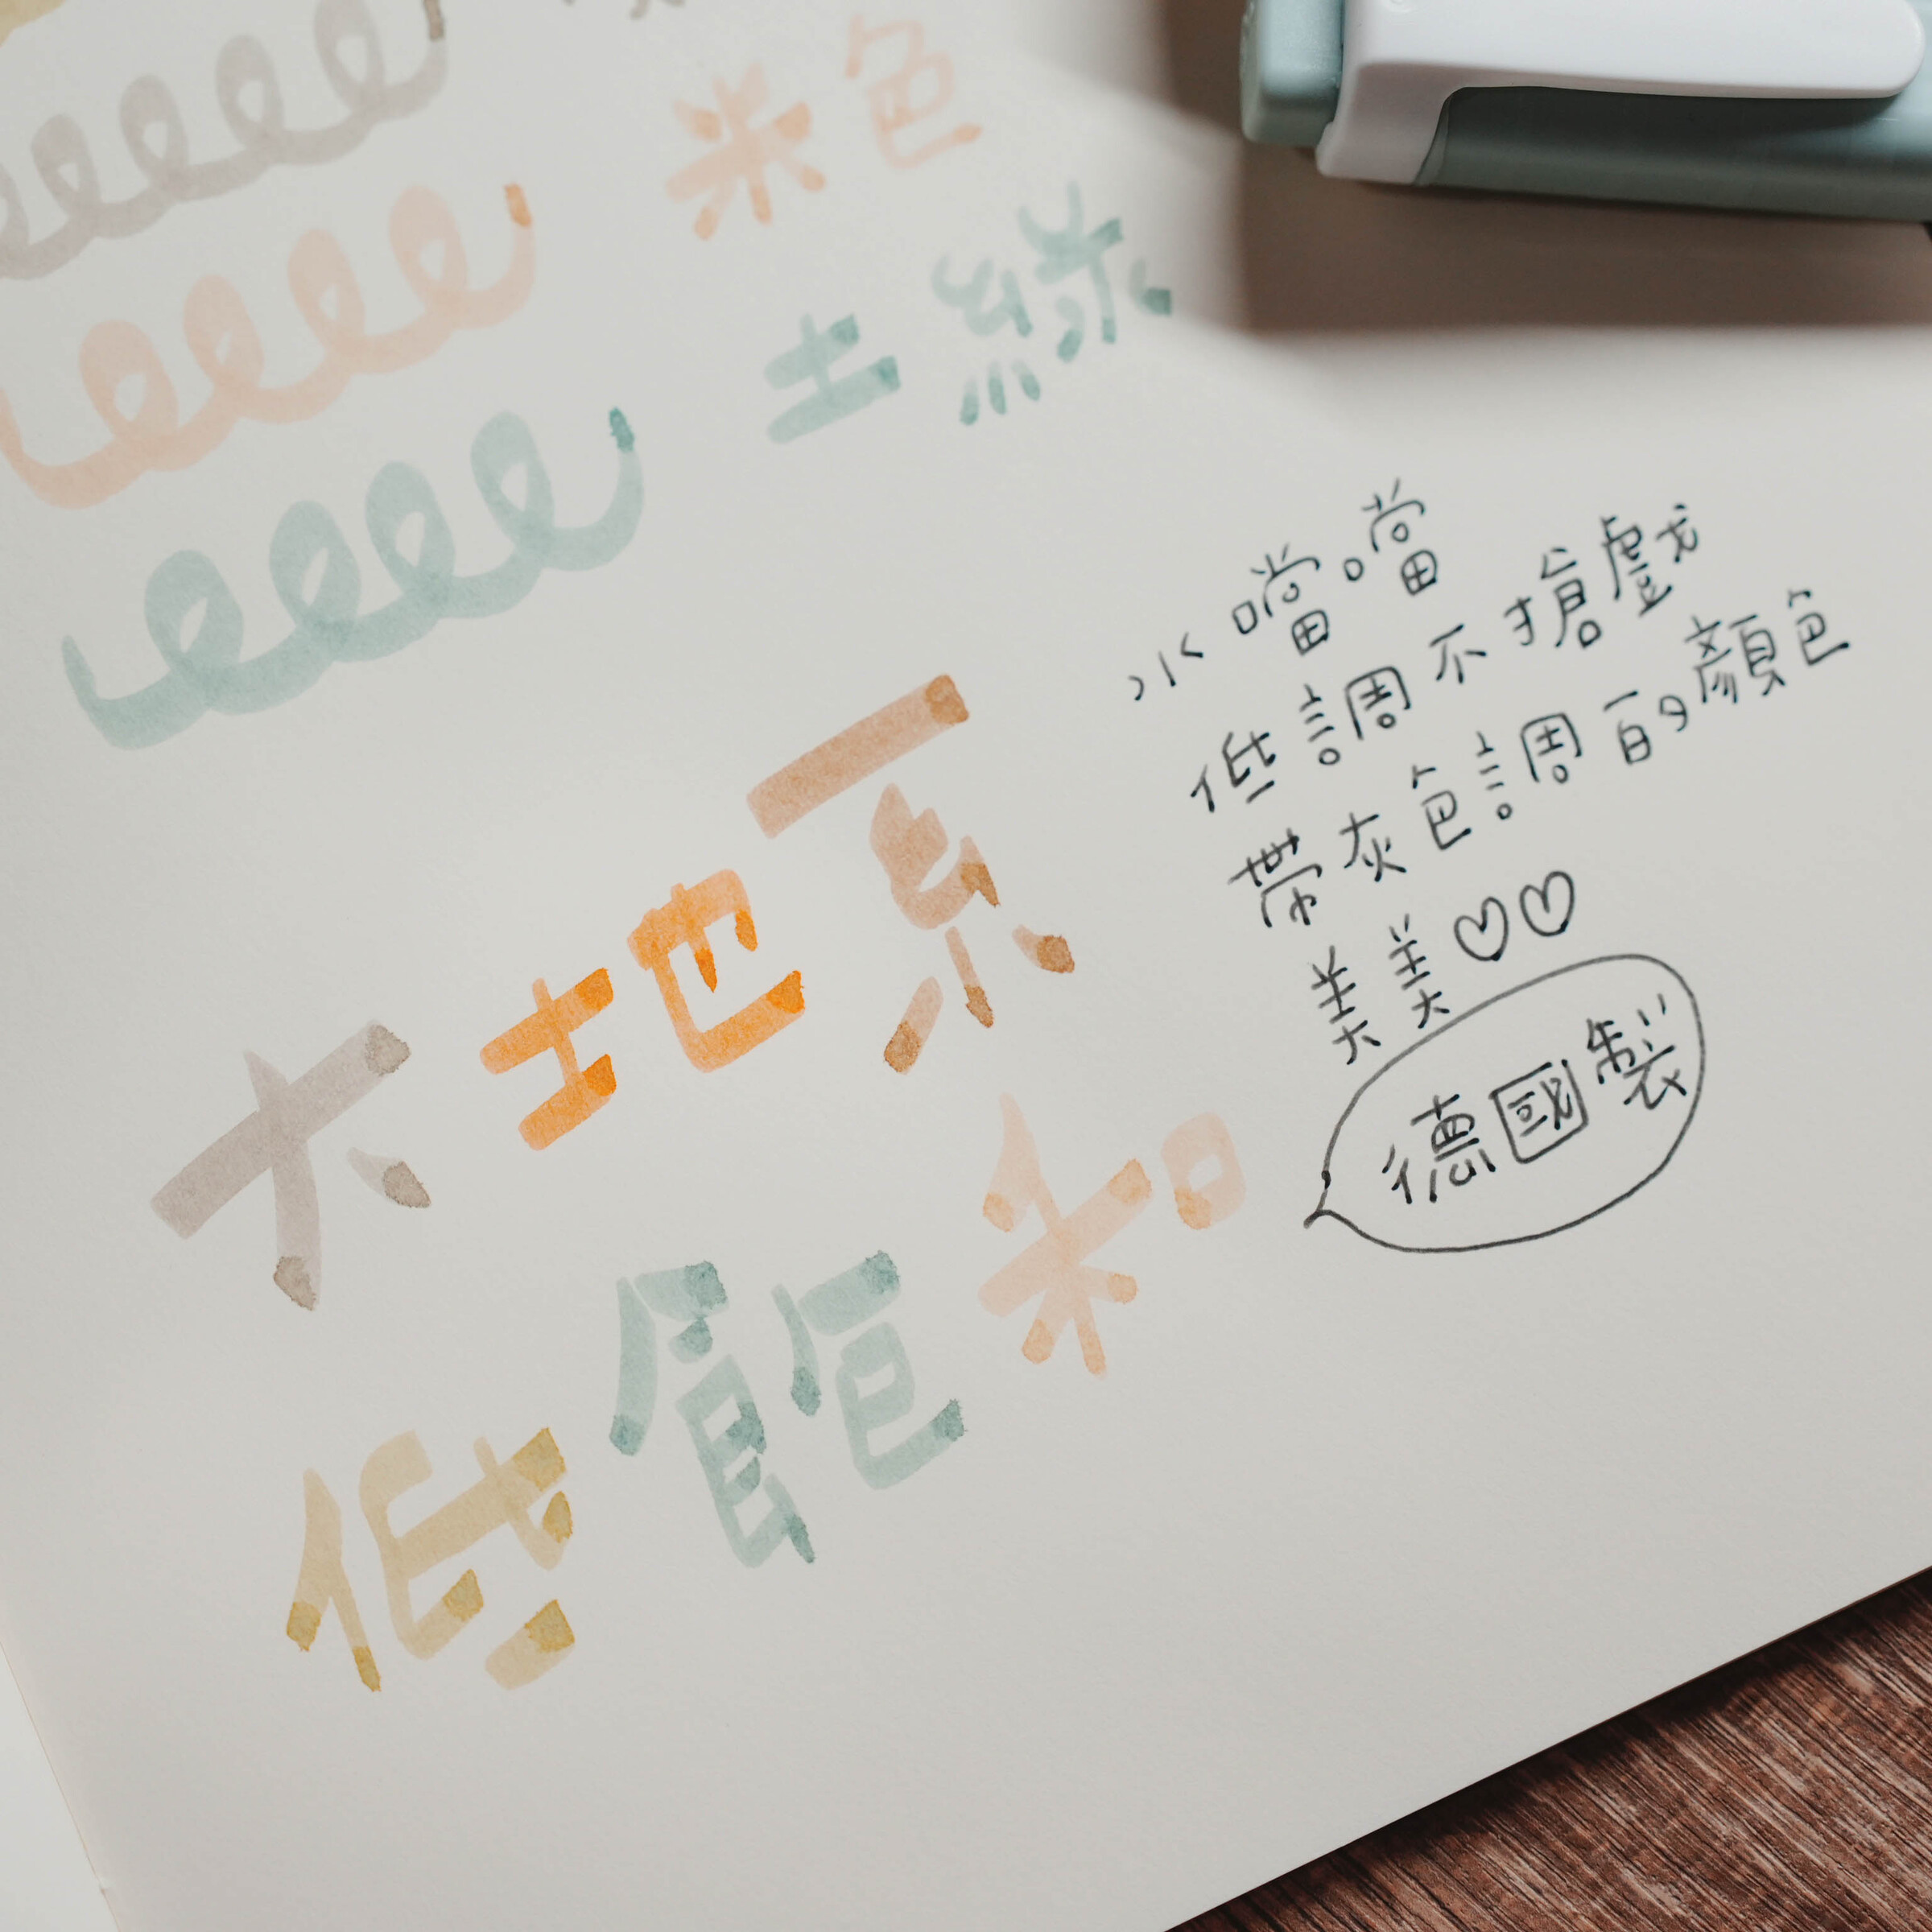 米色
土綠
水噹噹
低調不搶戲
帶灰色調的顏色
美美♡♡
德國製
大地系
低飽和